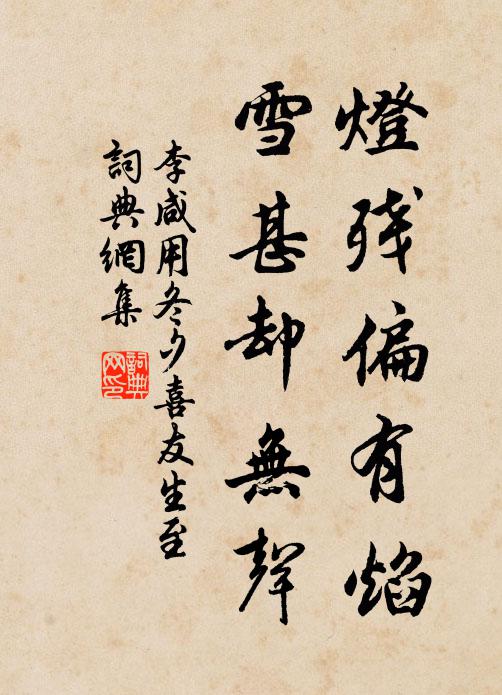 燈残偏有焰
雪甚却無聲
李咸用冬夕喜友生至
詞典網集
詞典网印